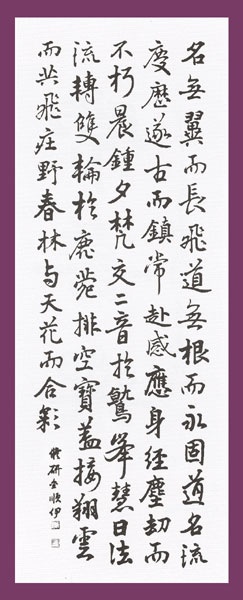 名無翼而長飛道無根而永固道名流
慶歷遂古而鎮常赴感應身經塵劫而
不朽晨鍾夕梵交二音於鷲峯慧日法
流轉雙輪於鹿菀排空寶蓋接翔雲
而共飛庄野春林与天花而合彩
研金順伊